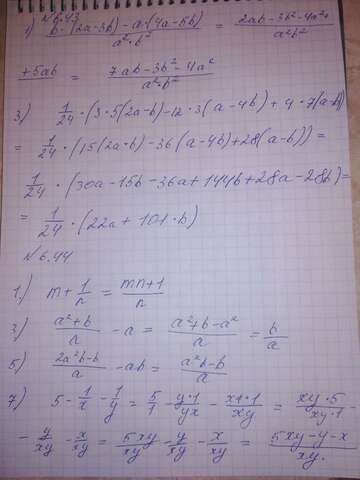 № 6.43
1) (b·(2a-3b) - a·(4a-5b))/(a²·b²) = (2ab-3b²-4a²+
+5ab)/ = (7ab-3b²-4a²)/(a²·b²)
3) 1/24 · (3·5(2a-b)-12·3(a-4b)+4·7(a-b))
= 1/24 · (15(2a-b)-36(a-4b)+28(a-b)) =
1/24 · (30a-15b-36a+144b+28a-28b)=
= 1/24 · (22a+101·b)
№ 6.44
1.) m + 1/n = (mn+1)/n
3) (a²+b)/a - a = (a²+b-a²)/a = b/a
5) (2a²b-b)/a - ab = (a²b-b)/a
7) 5 - 1/x - 1/y = 5/1 - (y·1)/(yx) - (x·1)/(xy) = (xy·5)/(xy·1) -
- y/xy - x/xy = 5xy/xy - y/xy - x/xy = (5xy-y-x)/xy.